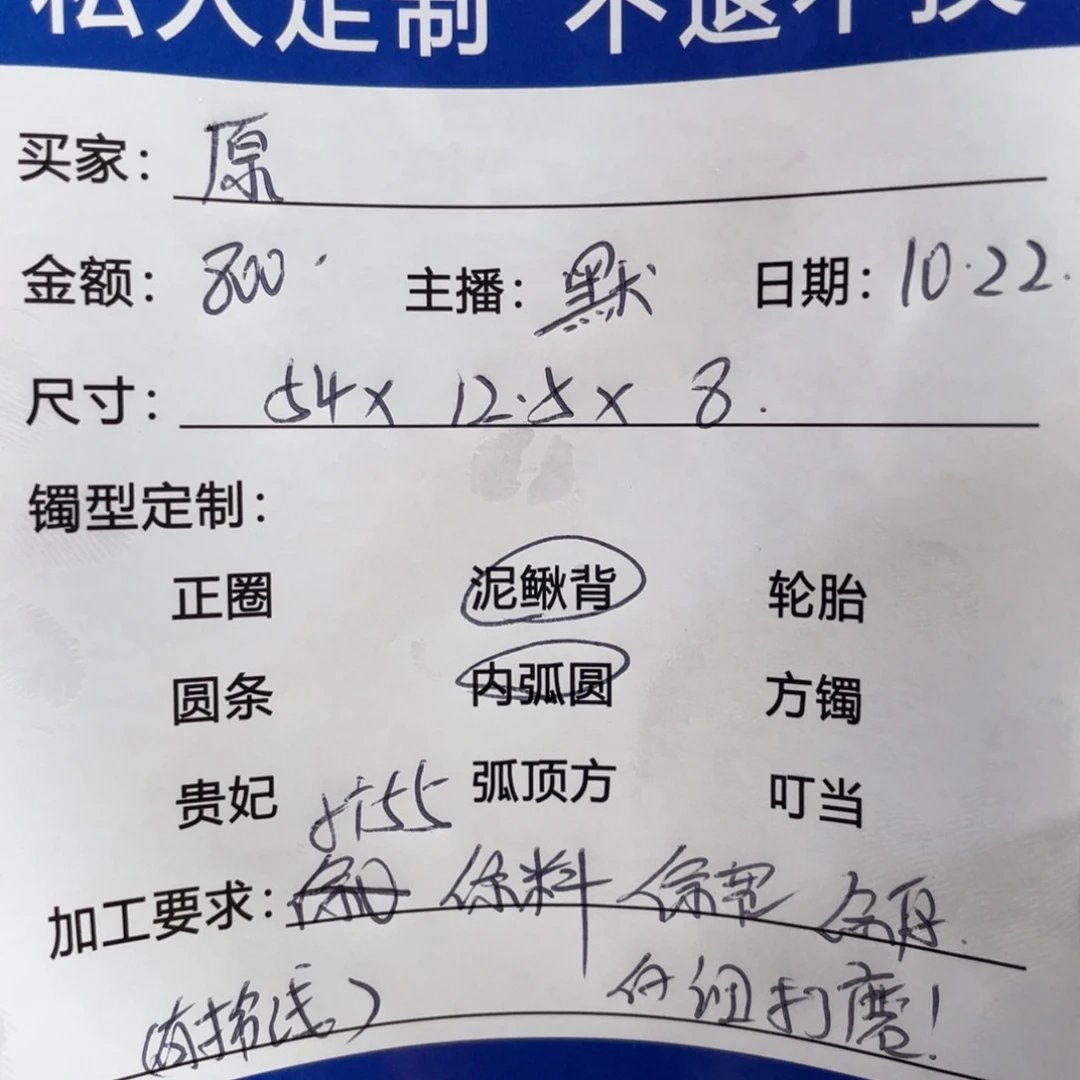 私人定制 不退不换
买家：原
金额：800. 主播：默 日期：10.22.
尺寸：54 x 12.5 x 8.
镯型定制：
正圈 泥鳅背 轮胎
圆条 内弧圆 方镯
贵妃 弧顶方 叮当
55
加工要求： 保料 保宽 保厚.
(有棉线) 仔细打磨!